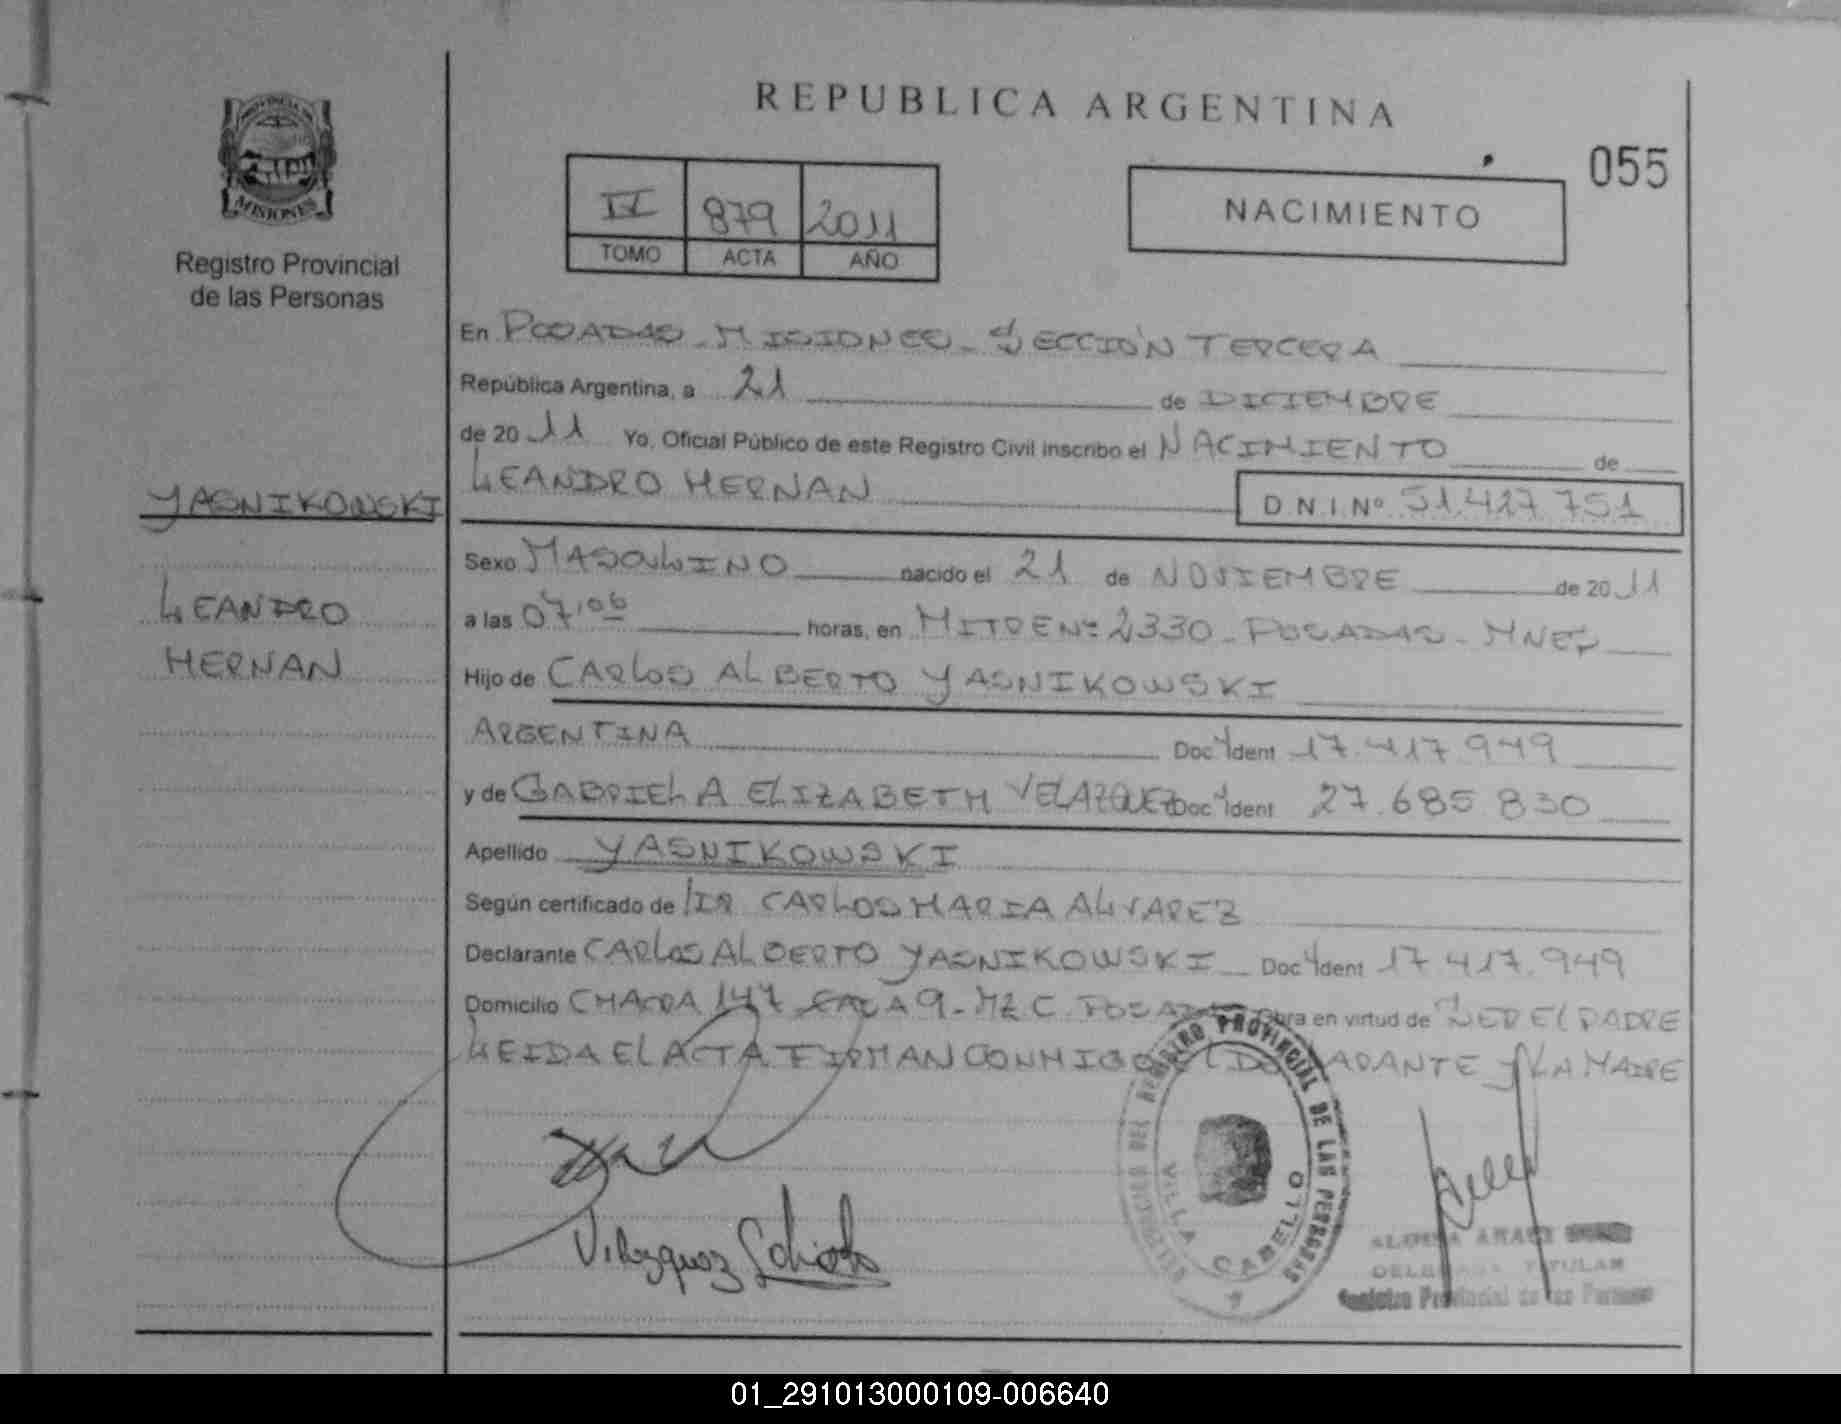 REPUBLICA ARGENTINA
055
MISIONES
Registro Provincial
de las Personas
879 2011
TOMO ACTA AÑO
NACIMIENTO
En POSADAS - MISIONES - SECCIÓN TERCERA
República Argentina, a 21 de DICIEMBRE
de 20 11 Yo, Oficial Público de este Registro Civil inscribo el NACIMIENTO de
LEANDRO HERNAN D.N.I.Nº 51.427.751
YASNIKOWSKI
LEANDRO
HERNAN
Sexo MASCULINO nacido el 21 de NOVIEMBRE de 20 11
a las 07,06 horas, en MITRE Nº 2330 - POSADAS - MNES
Hijo de CARLOS ALBERTO YASNIKOWSKI
ARGENTINA Doc Ident 17.417.949
y de GABRIELA ELIZABETH VELAZQUEZ Doc Ident 27.685.830
Apellido YASNIKOWSKI
Según certificado de CARLOS MARIA ALVAREZ
Declarante CARLOS ALBERTO YASNIKOWSKI Doc Ident 17.417.949
Domicilio CHACRA 147 CASA 9 - MZ C POSADAS Obra en virtud de SER EL PADRE
LEIDA EL ACTA FIRMAN CONMIGO EL DECLARANTE Y LA MADRE
REGISTRO PROVINCIAL DE LAS PERSONAS
VILLA CABELLO
Velazquez
TITULAR
Registro Provincial de las Personas
01_291013000109-006640